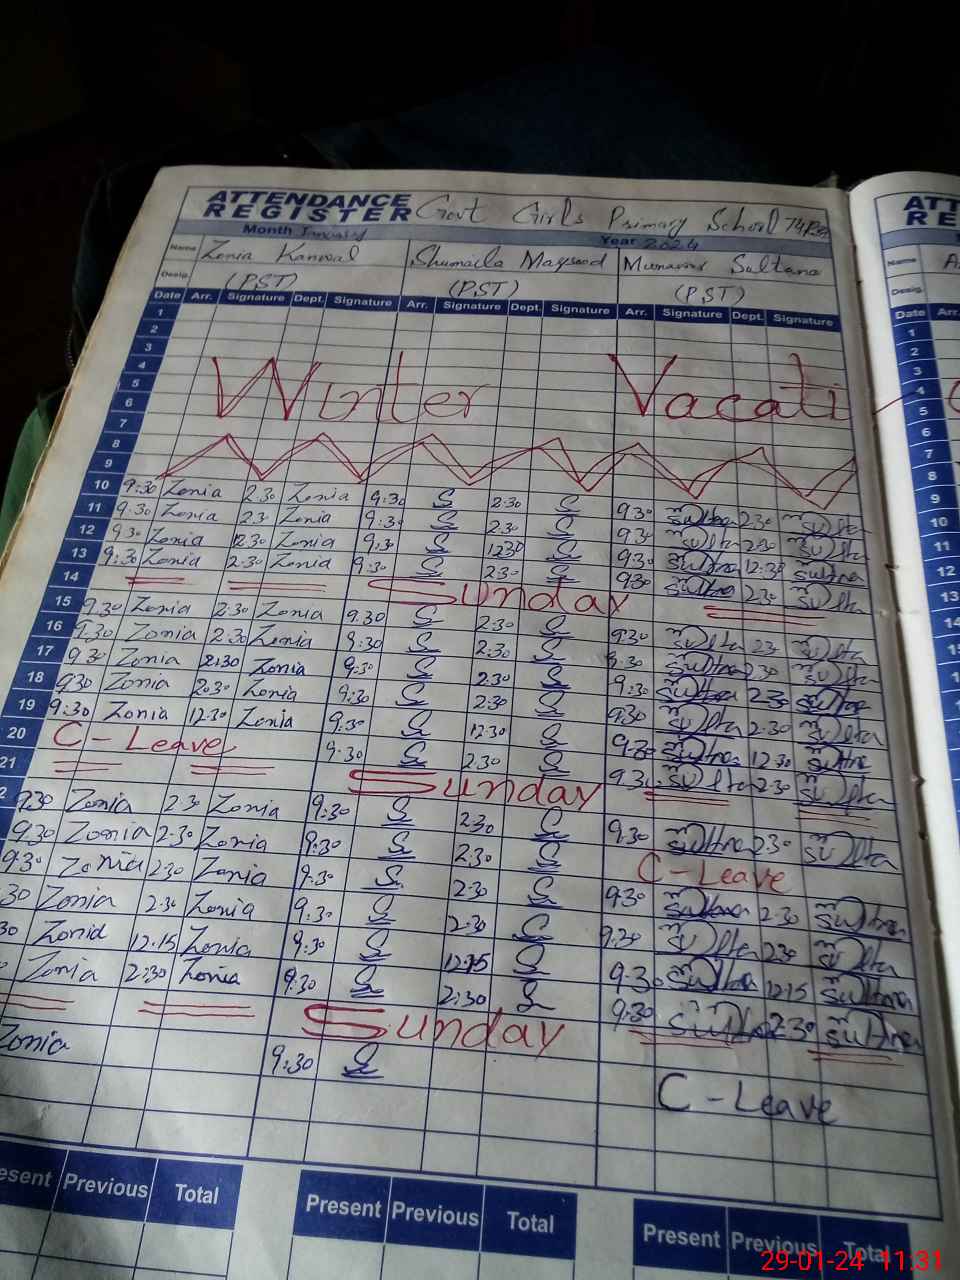 ATTENDANCE
REGISTER Govt Girls Primary School
Month January Year 2024
Name Zonia Kanwal Shumaila Maqsood Munawar Sultana
Desig. (PST) (P,ST) (P,ST)
Date Arr. Signature Dept. Signature Arr. Signature Dept. Signature Arr. Signature Dept. Signature
1
2
3
4
5 Winter Vacati
6
7
8
9
10 9:30 Zonia 2:30 Zonia 9:30 S 2:30 S 930 Sultna 2:30 Sultna
11 9:30 Zonia 2:3 Zonia 9:3 S 2:30 S 93 Sultna 2:30 Sultna
12 9:30 Zonia 12:30 Zonia 9:30 S 1230 S 9:30 Sultna 12:30 Sultna
13 9:30 Zonia 2:30 Zonia 9:30 S 2:30 S 930 Sultna 2:30 Sultna
14 Sunday
15 9:30 Zonia 2:30 Zonia 9.30 S 2:30 S 930 Sultna 23 Sultna
16 9:30 Zonia 2:30 Zonia 9:30 S 2:30 S 9:30 Sultna 2:30 Sultna
17 9:30 Zonia 2:30 Zonia 9:30 S 2:30 S 9:30 Sultna 2:30 Sultna
18 930 Zonia 2:30 Zonia 9:30 S 2:30 S 9:30 Sultna 2:30 Sultna
19 9:30 Zonia 12:30 Zonia 9:30 S 12:30 S 9:30 Sultna 12:30 Sultna
20 C-Leave 9:30 S 2:30 S 9:30 Sultna 2:30 Sultna
21 Sunday
2 9:30 Zonia 2:30 Zonia 9:30 S 2:30 S 9:30 Sultna 2:30 Sultna
9:30 Zonia 2:30 Zonia 9:30 S 2:30 S C-Leave
9:30 Zonia 2:30 Zonia 9:30 S 2:30 S 9:30 Sultna 2:30 Sultna
30 Zonia 2:30 Zonia 9:30 S 2:30 S 9:30 Sultna 2:30 Sultna
30 Zonia 12:15 Zonia 9:30 S 12:15 S 9:30 Sultna 12:15 Sultna
Zonia 2:30 Zonia 9:30 S 2:30 S 9:30 Sultna 2:30 Sultna
Sunday
Zonia 9:30 S C-Leave
esent Previous Total Present Previous Total Present Previous Total
ATT
RE
Name A
Desig.
Date Arr.
1
2
3
4
5
6
7
8
9
10
11
12
13
14
29-01-24 11:31